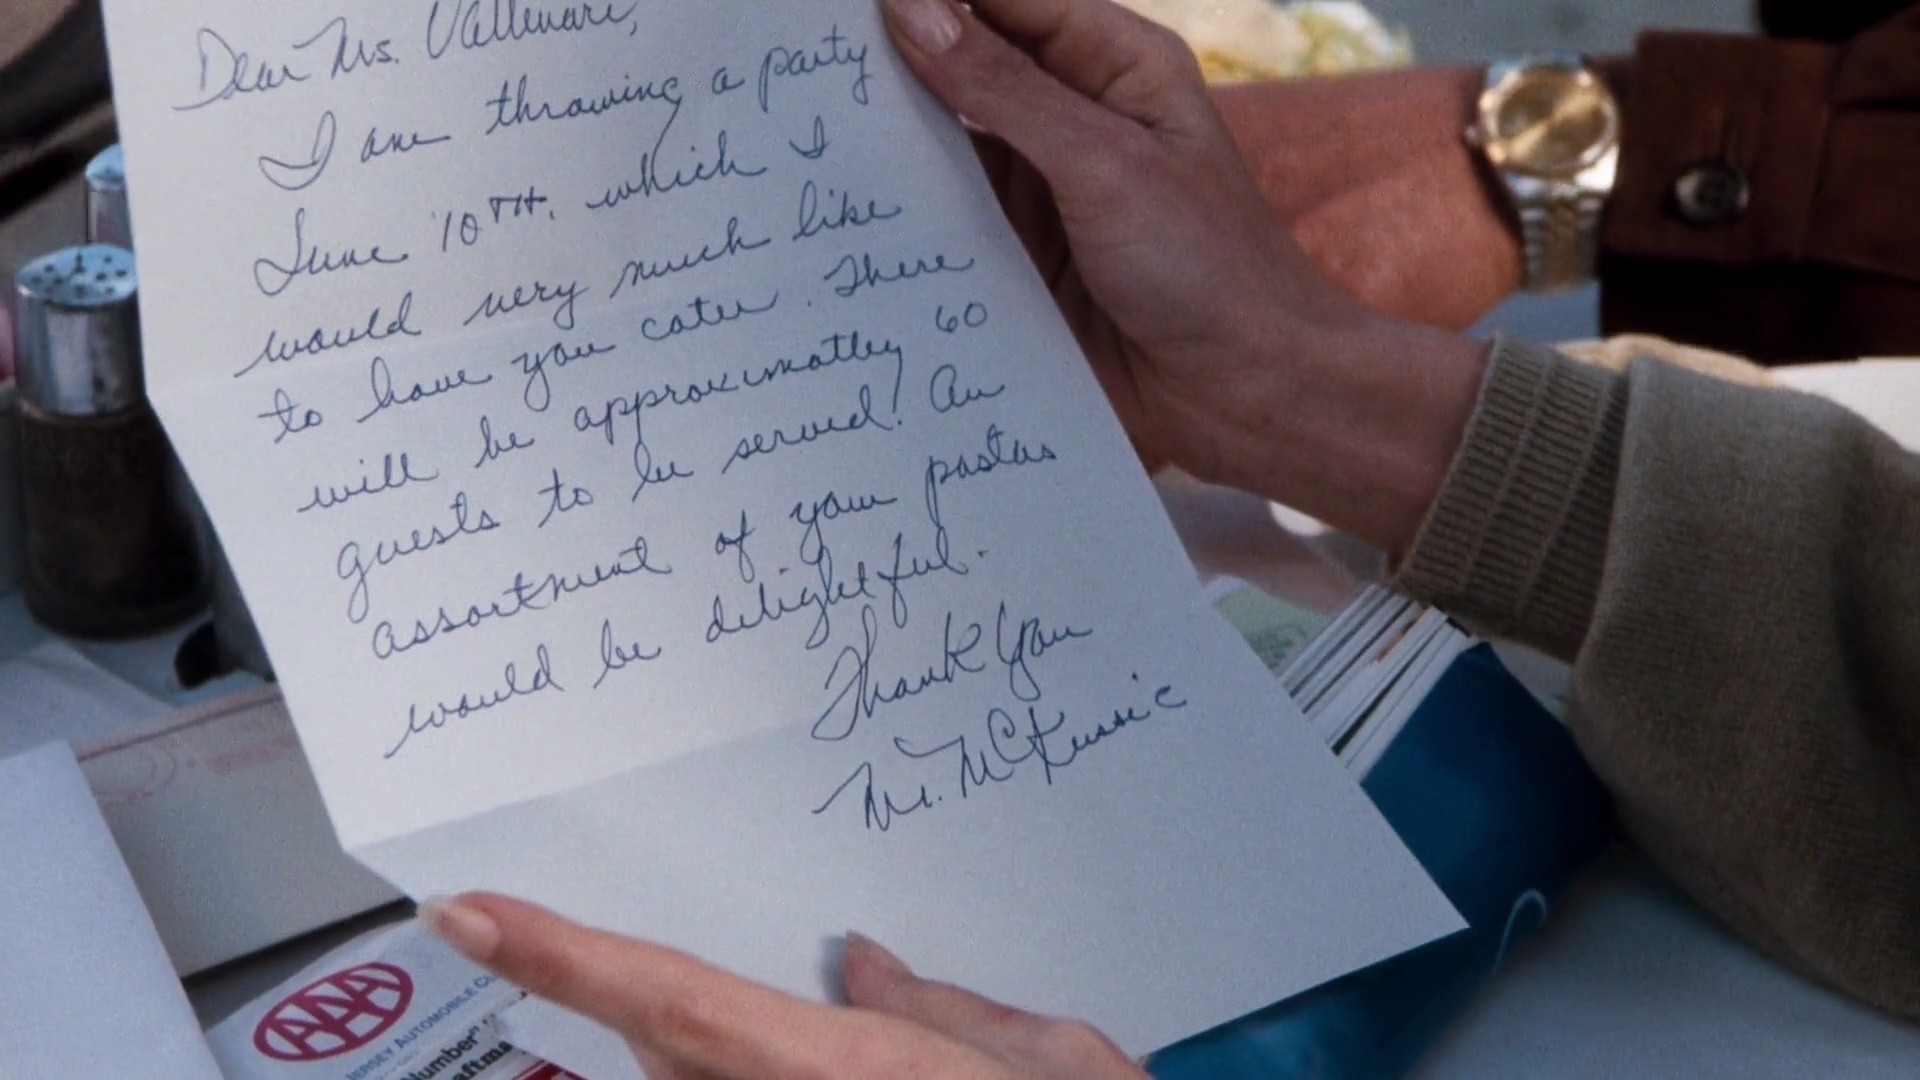 Dear Ms. Vallenari,
I am throwing a party
June 10TH. which I
would very much like
to have you cater. There
will be approximatley 60
guests to be served. An
assortment of your pastas
would be delightful.
Thank You
Mr. McKusic
AAA
JERSEY AUTOMOBILE
Number"